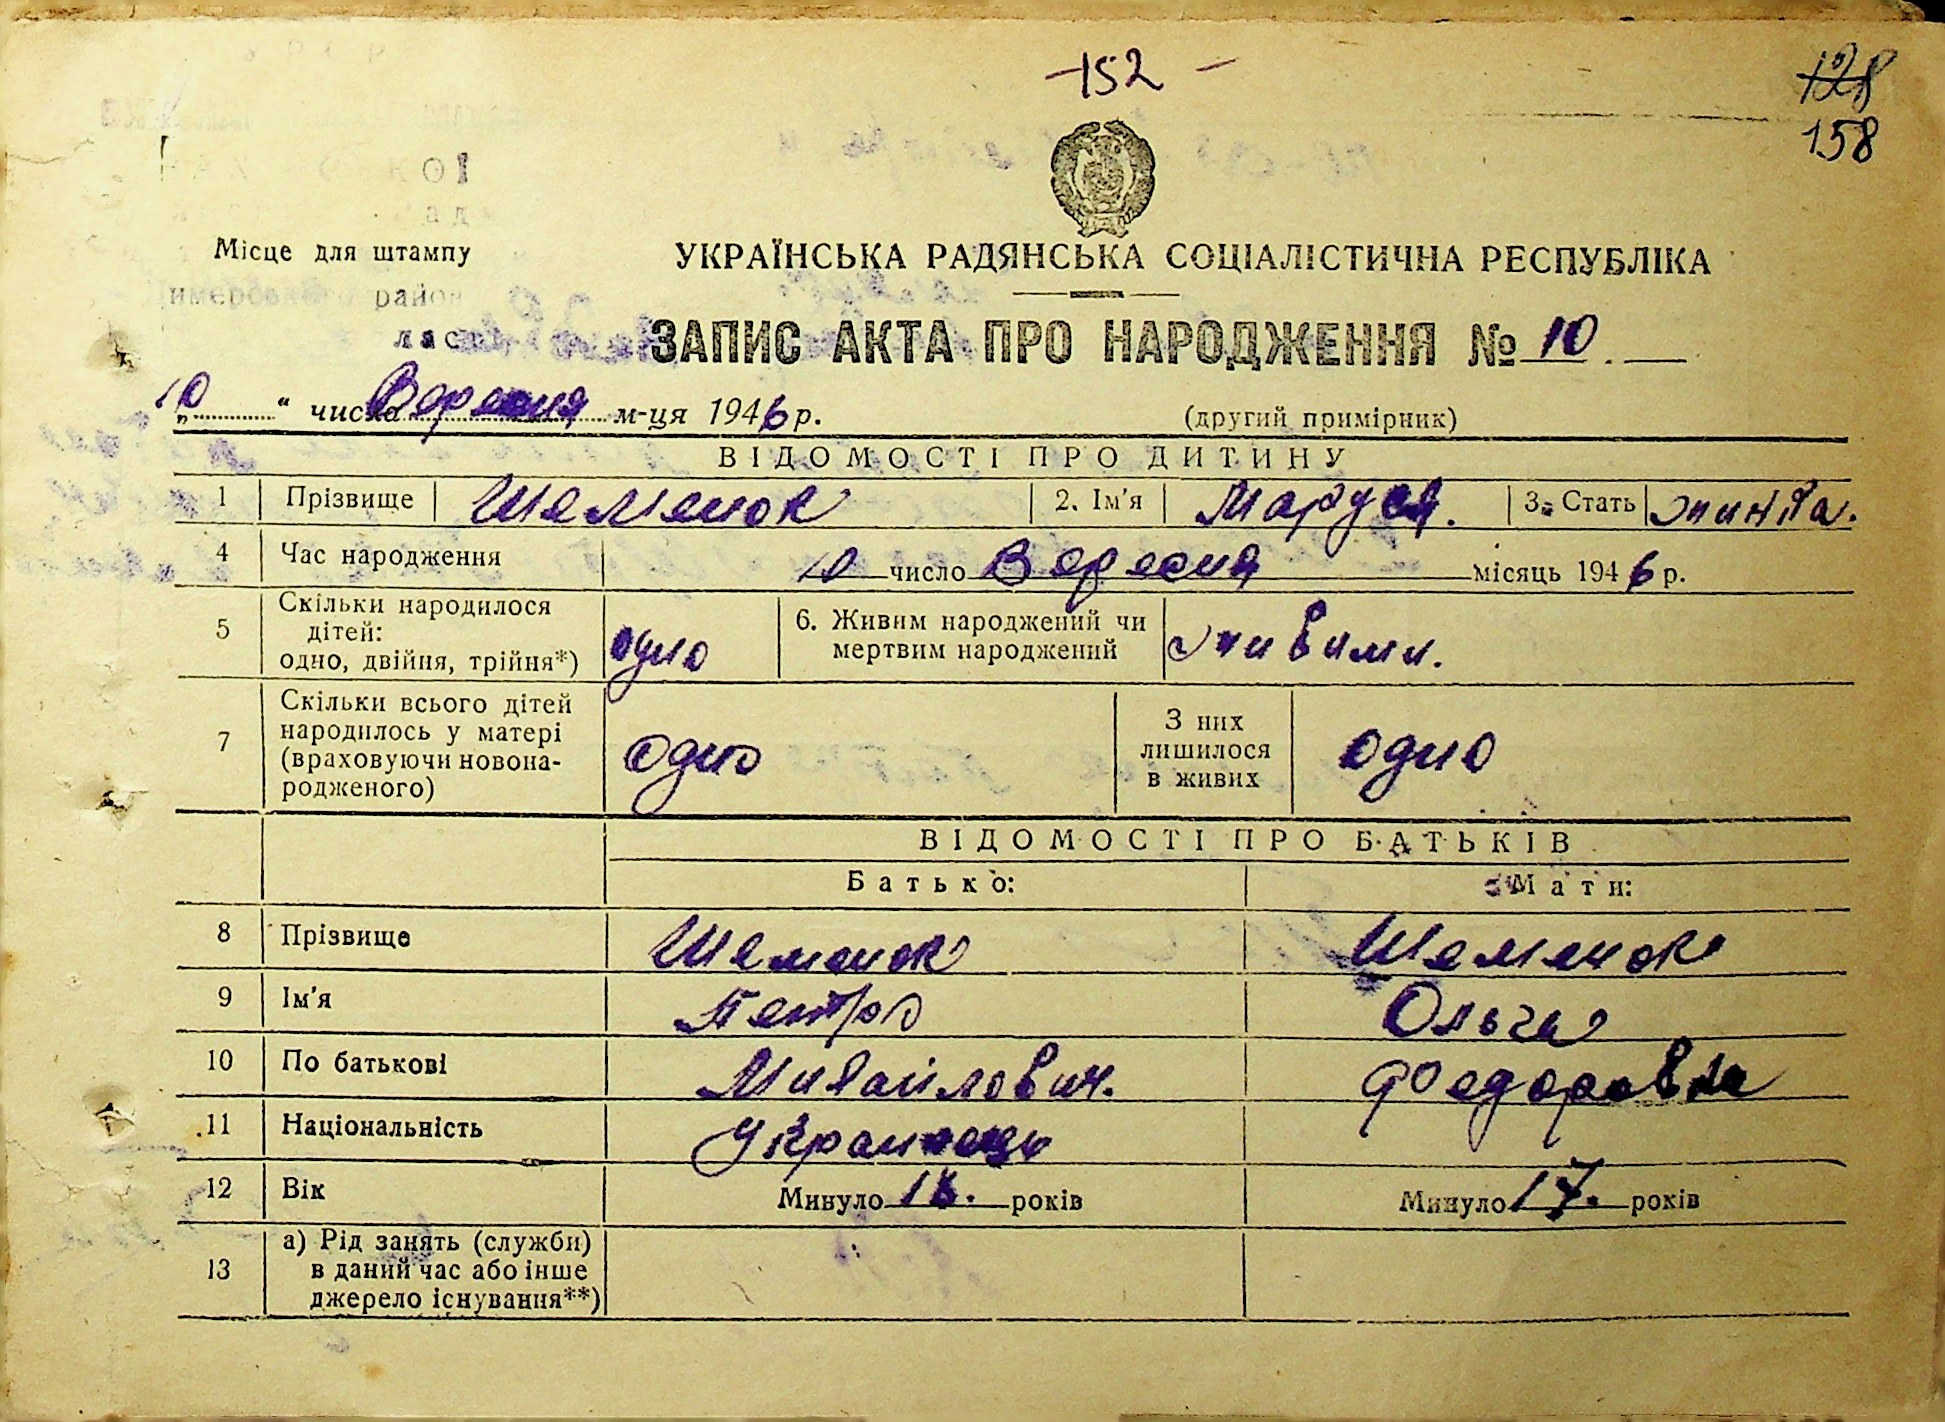 -152 -
128
158
Місце для штампу
УКРАЇНСЬКА РАДЯНСЬКА СОЦІАЛІСТИЧНА РЕСПУБЛІКА
район
ЗАПИС АКТА ПРО НАРОДЖЕННЯ № 10.
„10“ число Вересня м-ця 1946 р.
(другий примірник)
ВІДОМОСТІ ПРО ДИТИНУ
1 Прізвище Шеменок 2. Ім'я Маруся. 3. Стать жинка.
4 Час народження 10 число Вересня місяць 1946 р.
5 Скільки народилося дітей: одно, двійня, трійня*) одно 6. Живим народжений чи мертвим народжений живими.
7 Скільки всього дітей народилось у матері (враховуючи новонародженого) одно З них лишилося в живих одно
ВІДОМОСТІ ПРО БАТЬКІВ
Батько: Мати:
8 Прізвище Шеменок Шеменок
9 Ім'я Петро Ольга
10 По батькові Михайлович. Федоровна
11 Національність Украинець
12 Вік Минуло 18. років Минуло 17. років
13 а) Рід занять (служби) в даний час або інше джерело існування**)